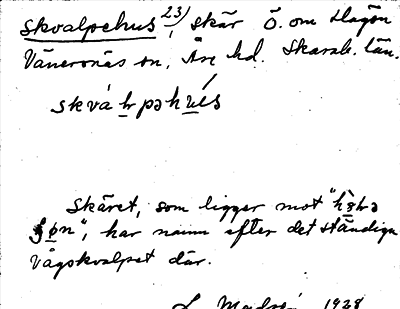 Skvalpehus 23), skär Ö. om Hagön
Vänersnäs sn, Åse hd. Skarab. län.
skvàlpəhu̲s
Skäret, som ligger mot "
", har namn efter det ständiga
vågskvalpet där.
1928